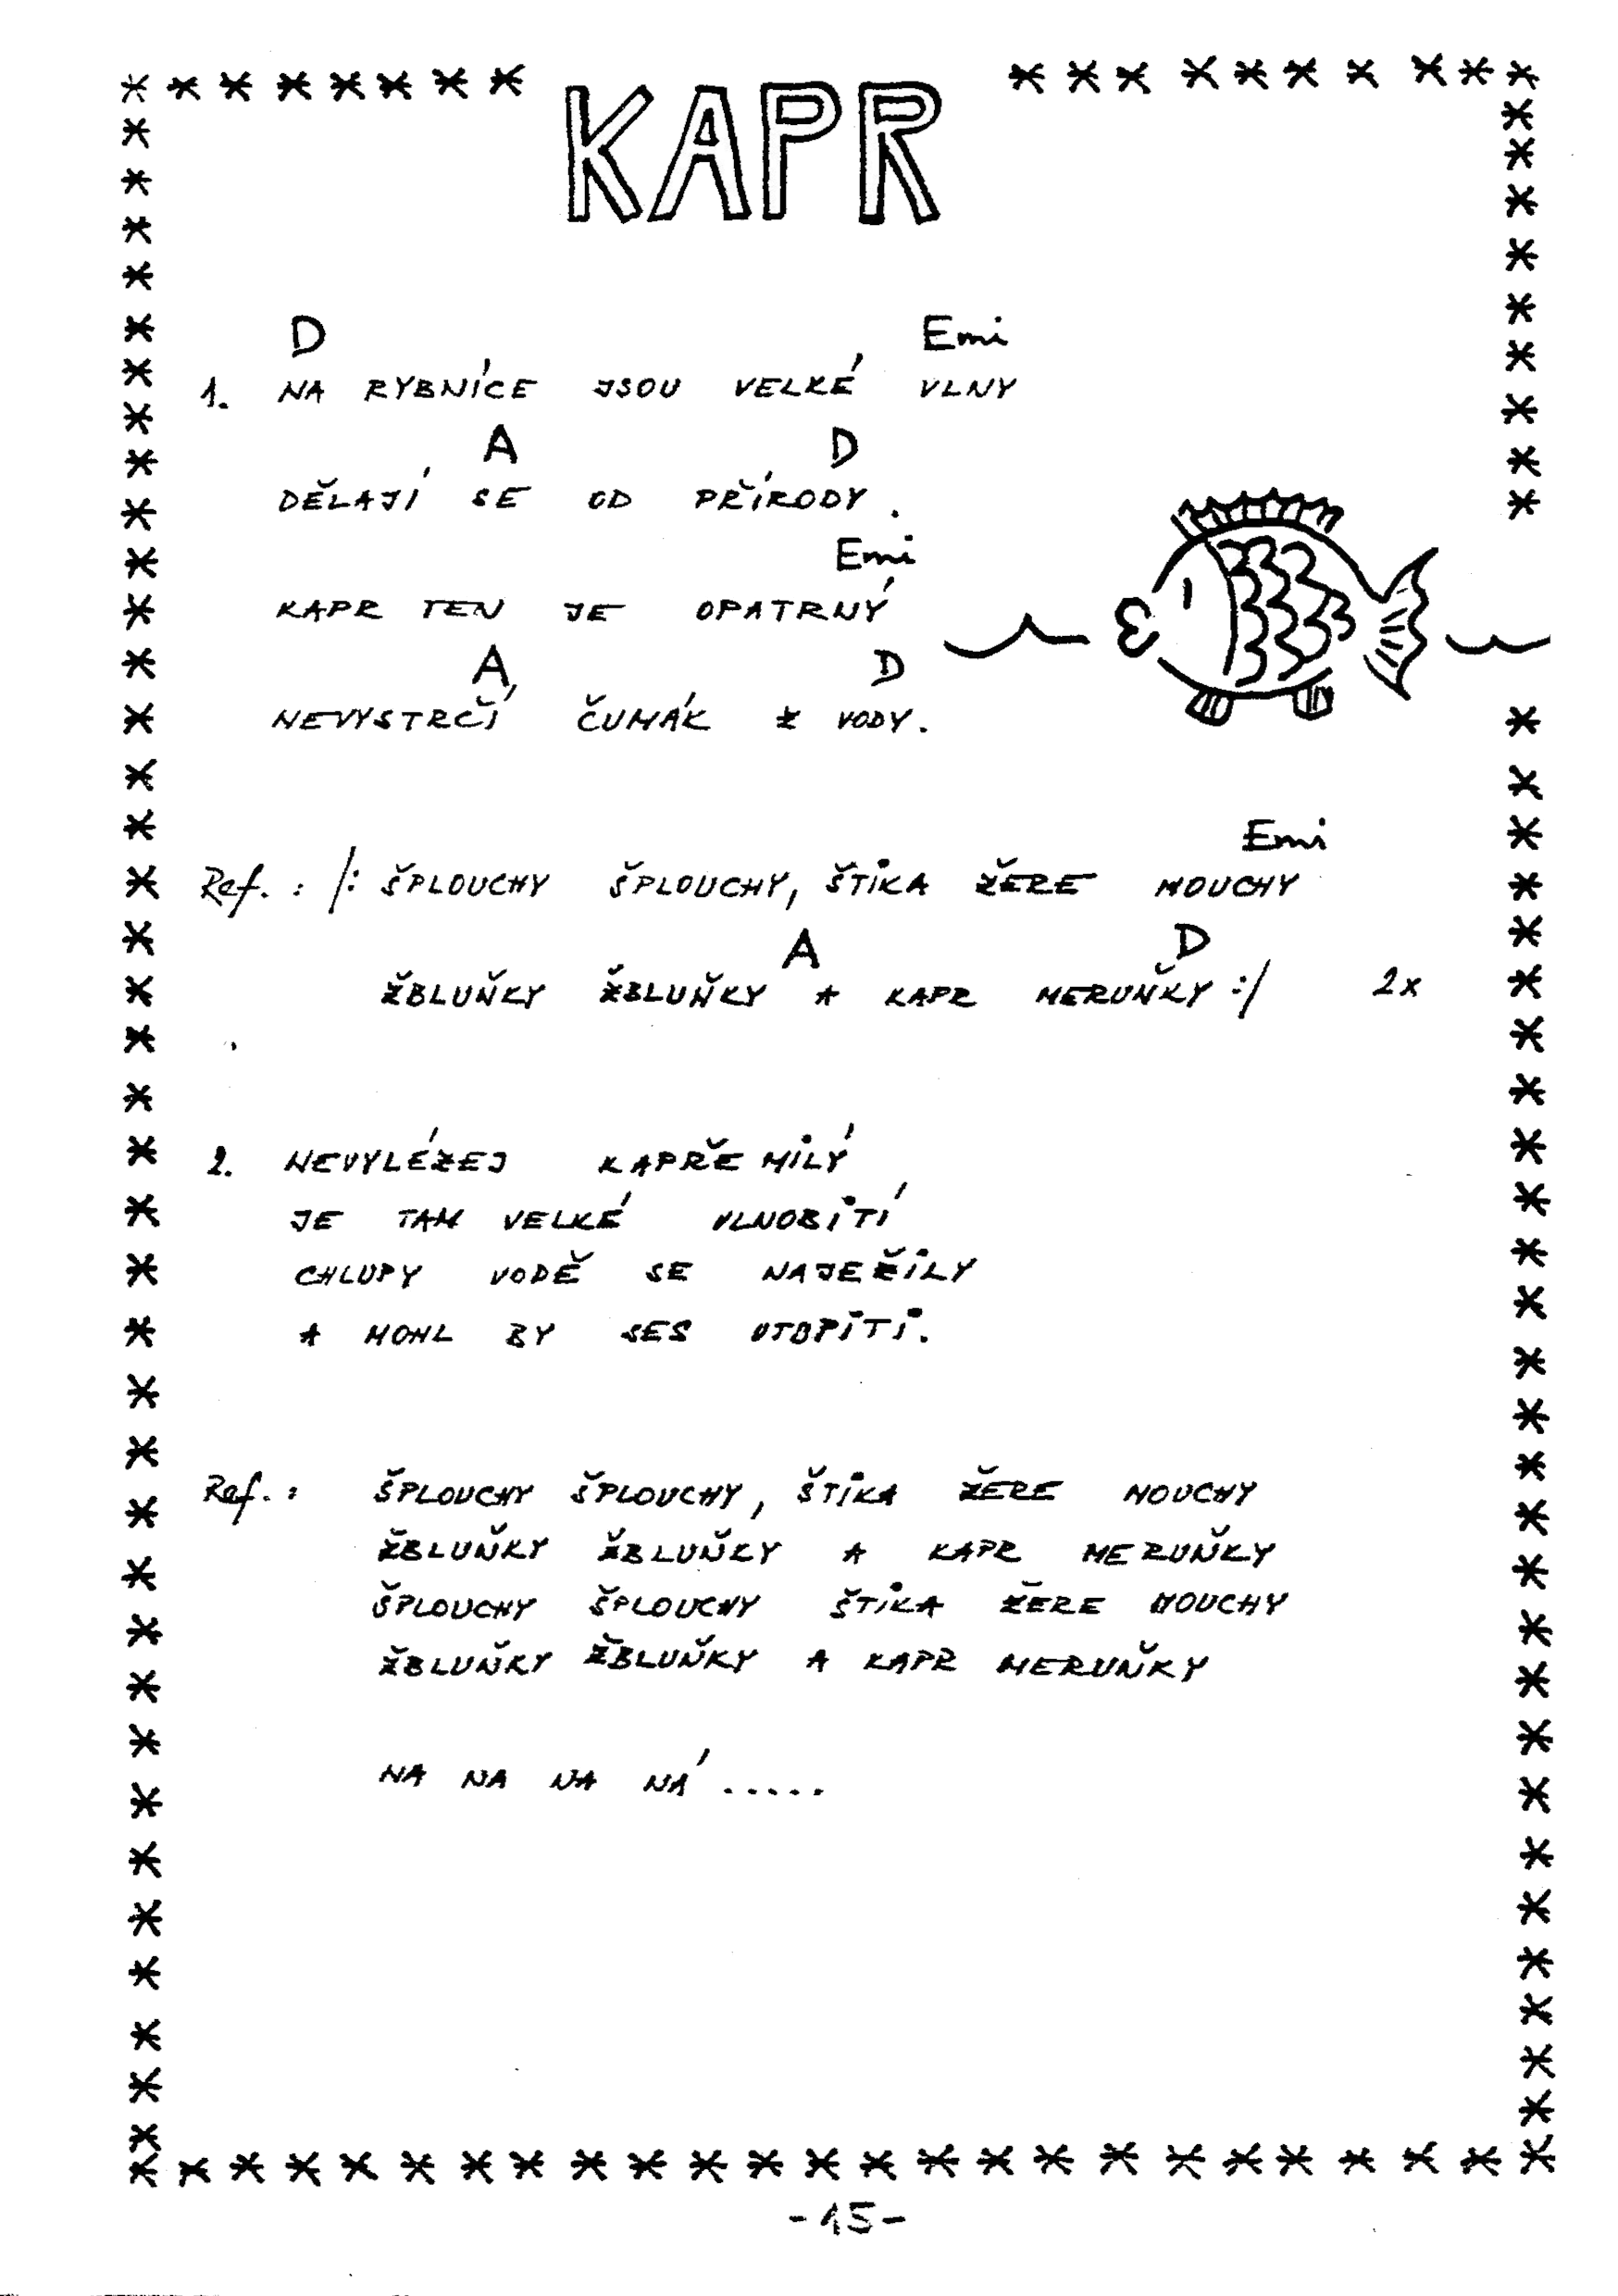 KAPR
D Emi
1. NA RYBNÍCE JSOU VELKÉ VLNY
A D
DĚLAJÍ SE OD PŘÍRODY.
Emi
KAPR TEN JE OPATRNÝ
A D
NEVYSTRČÍ ČUMÁK Z VODY.
Emi
Ref. : /: ŠPLOUCHY ŠPLOUCHY, ŠTIKA ŽERE MOUCHY
A D
ŽBLUŇKY ŽBLUŇKY A KAPR MERUŇKY :/ 2x
2. NEVYLÉZEJ KAPŘE MILÝ
JE TAM VELKÉ VLNOBITÍ
CHLUPY VODĚ SE NAJEŽILY
A MOHL BY SES UTOPITI.
Ref. : ŠPLOUCHY ŠPLOUCHY, ŠTIKA ŽERE MOUCHY
ŽBLUŇKY ŽBLUŇKY A KAPR MERUŇKY
ŠPLOUCHY ŠPLOUCHY ŠTIKA ŽERE MOUCHY
ŽBLUŇKY ŽBLUŇKY A KAPR MERUŇKY
NA NA NA NÁ .....
-15-